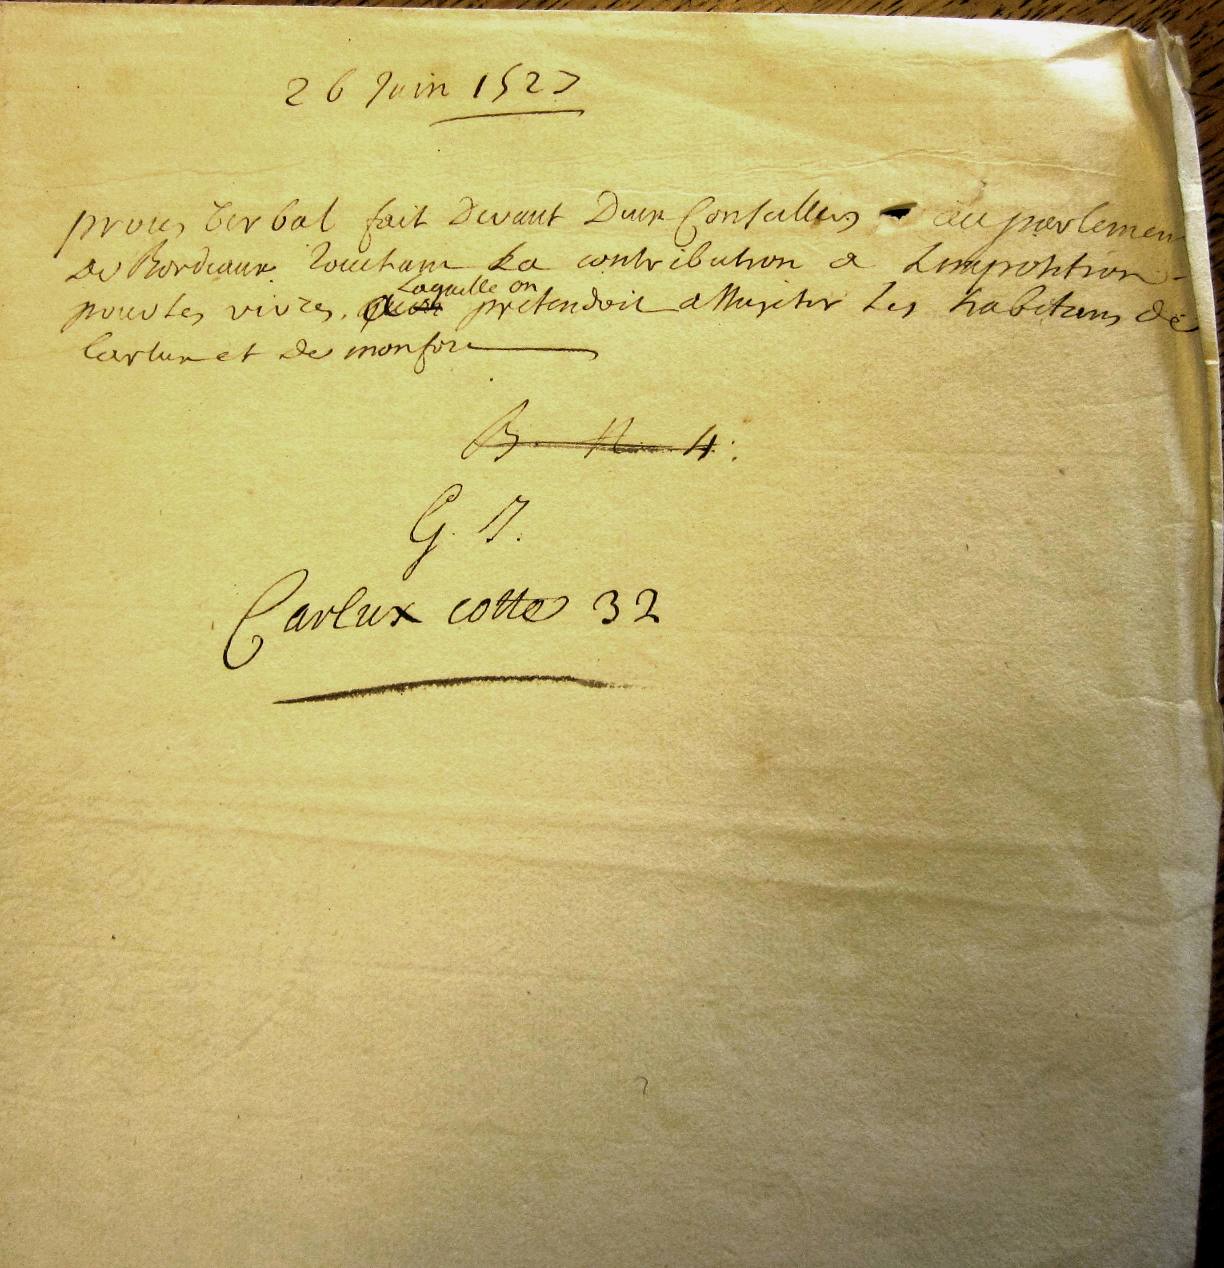 26 Juin 1527
proces verbal fait devant deux Conseillers au parlement
de Bordeaux touchant La contribution a Limposition
pour les vivres, a laquelle on pretendoit assujetir les habitans de
Carlux et de monfort
B. N. 4.
G. 7.
Carlux cotte 32